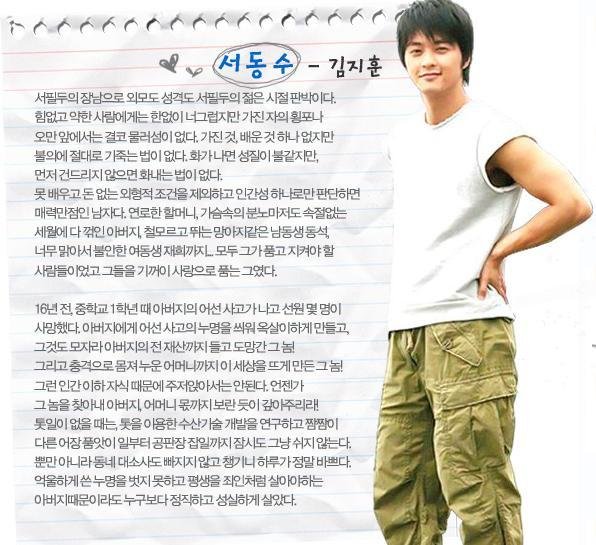 서동수 - 김지훈
서필두의 장남으로 외모도 성격도 서필두의 젊은 시절 판박이다.
힘없고 약한 사람에게는 한없이 너그럽지만 가진 자의 횡포나
오만 앞에서는 결코 물러섬이 없다. 가진 것, 배운 것 하나 없지만
불의에 절대로 기죽는 법이 없다. 화가 나면 성질이 불같지만,
먼저 건드리지 않으면 화내는 법이 없다.
못 배우고 돈 없는 외형적 조건을 제외하고 인간성 하나로만 판단하면
매력만점인 남자다. 연로한 할머니, 가슴속의 분노마저도 속절없는
세월에 다 꺾인 아버지, 철모르고 뛰는 망아지같은 남동생 동석,
너무 맑아서 불안한 여동생 재희까지... 모두 그가 품고 지켜야 할
사람들이었고 그들을 기꺼이 사랑으로 품는 그였다.
16년 전, 중학교 1학년 때 아버지의 어선 사고가 나고 선원 몇 명이
사망했다. 아버지에게 어선 사고의 누명을 씌워 옥살이하게 만들고,
그것도 모자라 아버지의 전 재산까지 들고 도망간 그 놈!
그리고 충격으로 몸져 누운 어머니까지 이 세상을 뜨게 만든 그 놈!
그런 인간 이하 자식 때문에 주저앉아서는 안된다. 언젠가
그 놈을 찾아내 아버지, 어머니 몫까지 보란 듯이 갚아주리라!
톳일이 없을 때는, 톳을 이용한 수산기술 개발을 연구하고 짬짬이
다른 어장 품앗이 일부터 공판장 잡일까지 잠시도 그냥 쉬지 않는다.
뿐만 아니라 동네 대소사도 빠지지 않고 챙기니 하루가 정말 바쁘다.
억울하게 쓴 누명을 벗지 못하고 평생을 죄인처럼 살아야하는
아버지때문이라도 누구보다 정직하고 성실하게 살았다.